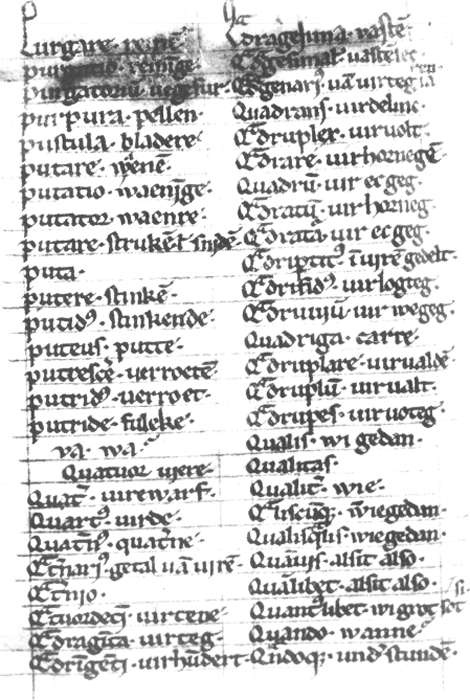 Purgare · reinē
purgatio · reinīge
purgatoriū · uegefur
purpura · pellen
pustula · bladere
putare · wenē
putatio · waenīge
putator · waenre
putare · strukē ł snidē
puta ·
putere · stinkē
putidꝰ · stinkende
puteus · putte
putrescē · uerroetē
putridꝰ · uerroet
putride · fuleke
va · wa
Quatuor · uiere
Quat͛ · uirewarf
Quartꝰ · uirde
Quat͛nꝰ · quat͛ne
Qt͛narꝰ · getal uā uirē
Qt͛nio ·
Qtuordecī · uirtene
Qdragīta · uirteg
Qdrīgēti · uirhūdert
Qdragesima · uastē
Qdgesimal͛ ·
Qdgenarꝰ · uā uirteg iarē
Quadrans · uirdelinc
Qdruplex · uiruolt
Qdrare · uirhornegē
Quadrū · uir ecgeg
Qdratū · uirhorneg
Qdrata · uir ecgeg
Qdruptitꝰ · ī uirē gedelt
Qdrifidꝰ · uirlogteg
Qdruuiū · uir wegeg
Quadriga · carre
Qdruplare · uirualdē
Qdruplū · uirualt
Qdrupes · uiruoteg
Qualis · wi gedan
Qualitas ·
Qualit͛ · wie
Qliscūq; · wiegedan
Qualisq̄lis · wiegedan
Quāuis · alsit also
Quālibet · alsit also
Quantūlibet · wi grot sot si
Quando · wanne
Qn̄doq; · und͛stundē